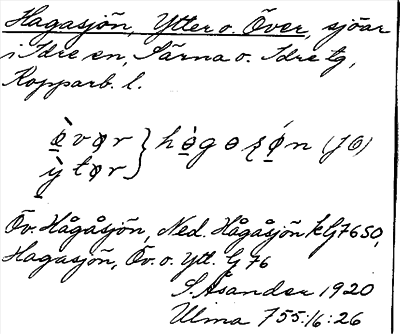 Hagasjön, Ytter o. Över, sjöar
i Idre sn, Särna o. Idre tg,
Kopparb. l.
ø̀vər } hègɵʂǿn (JÖ)
ỳtər
Öv. Hågåsjön, Ned. Hågåsjön kG7650,
Hagasjön, Öv. o. Ytt. G 76
S. Åsander 1920
Ulma 755:16:26